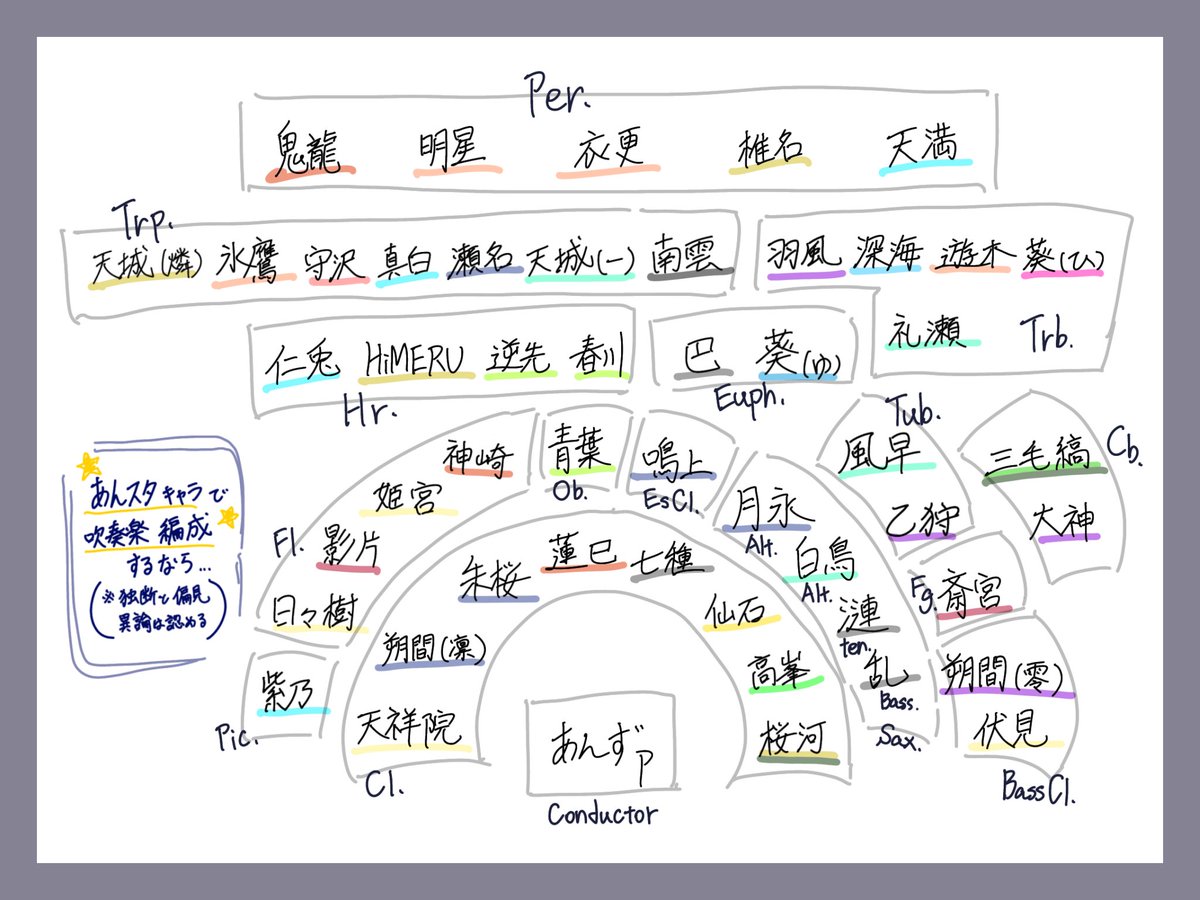 Per.
鬼龍 明星 衣更 椎名 天満
Trp.
天城(燐) 氷鷹 守沢 真白 瀬名 天城(一) 南雲
羽風 深海 遊木 葵(ひ)
礼瀬 Trb.
仁兎 HiMERU 逆先 春川
Hr.
巴 葵(ゆ)
Euph.
Tub.
風早
乙狩
三毛縞 Cb.
大神
あんスタキャラで
吹奏楽 編成
するなら…
(※独断と偏見
異論は認める)
神崎
姫宮
Fl. 影片
日々樹
青葉
Ob.
鳴上
EsCl.
月永
Alt.
白鳥
Alt.
漣
ten.
乱
Bass.
Sax.
Fg. 斎宮
朔間(零)
伏見
BassCl.
紫乃
Pic.
朱桜 蓮巳 七種
朔間(凛) 仙石
天祥院 高峯
Cl. 桜河
あんずP
Conductor